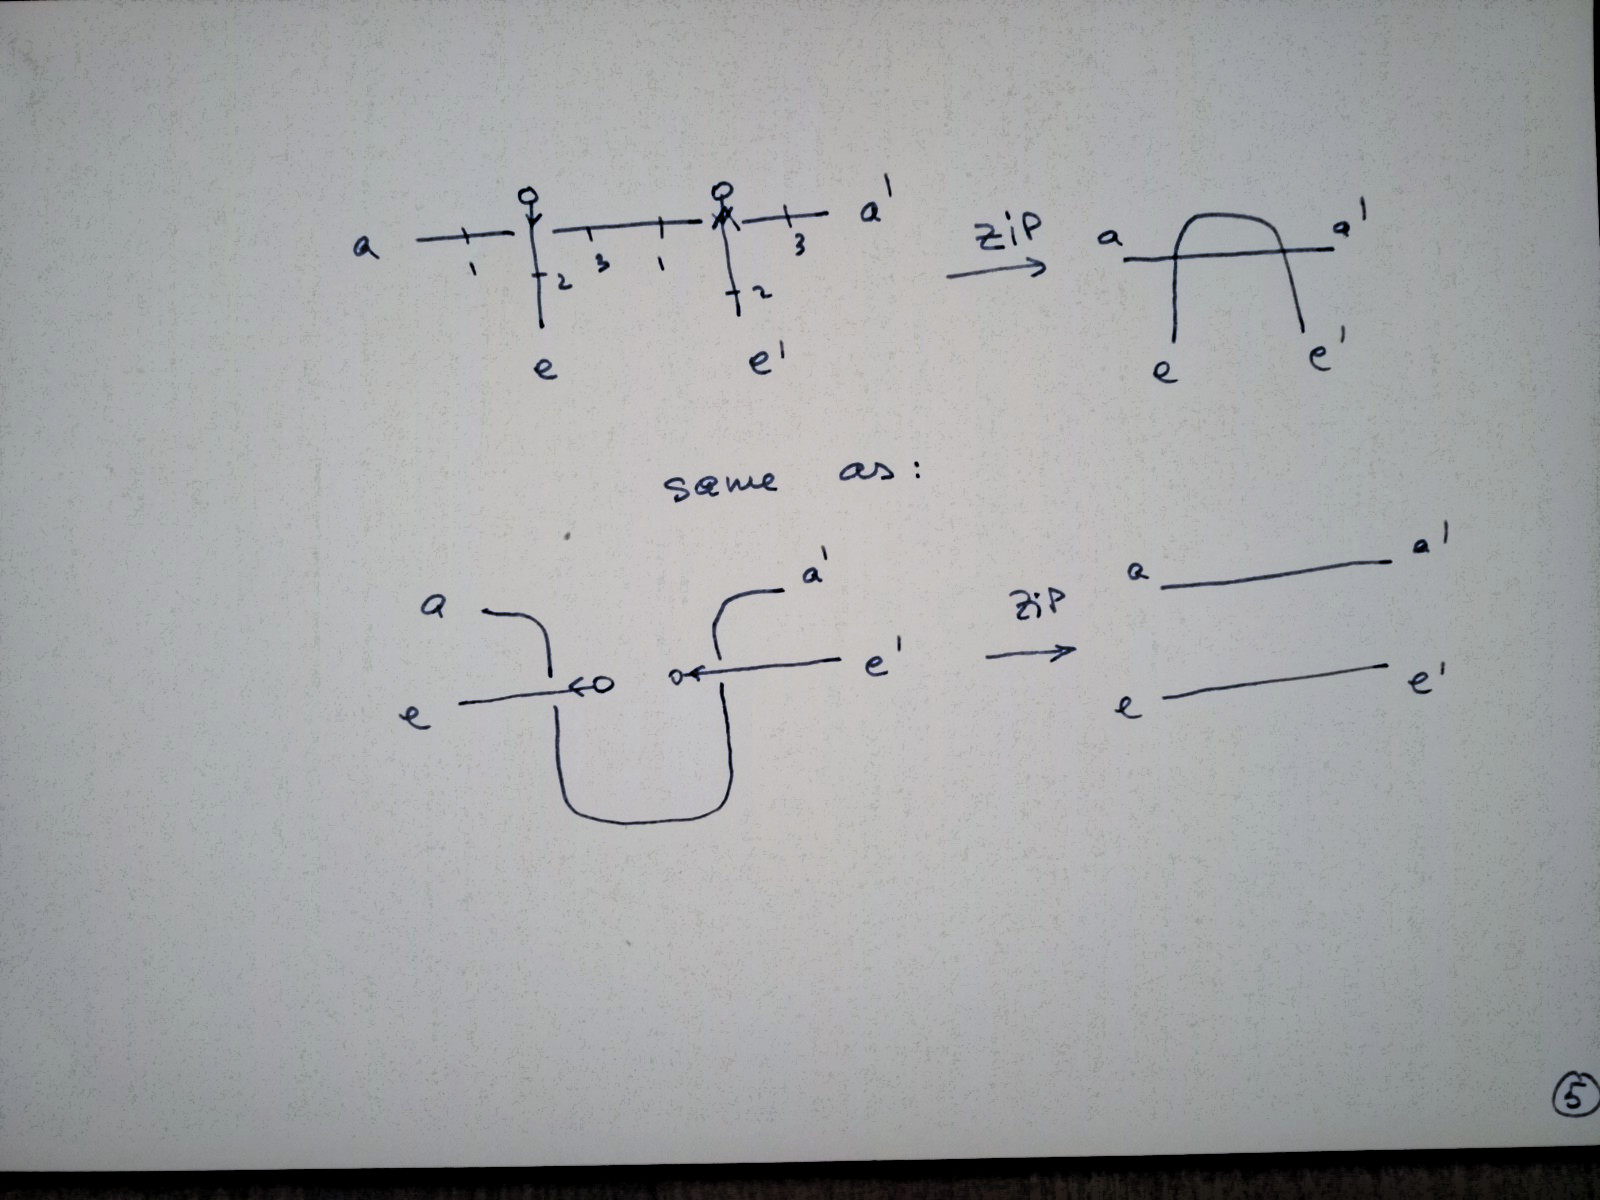 a 1 2 3 1 2 3 a'
e e'
zip
a a'
e e'
same as:
a a'
e e'
zip
a a'
e e'
5